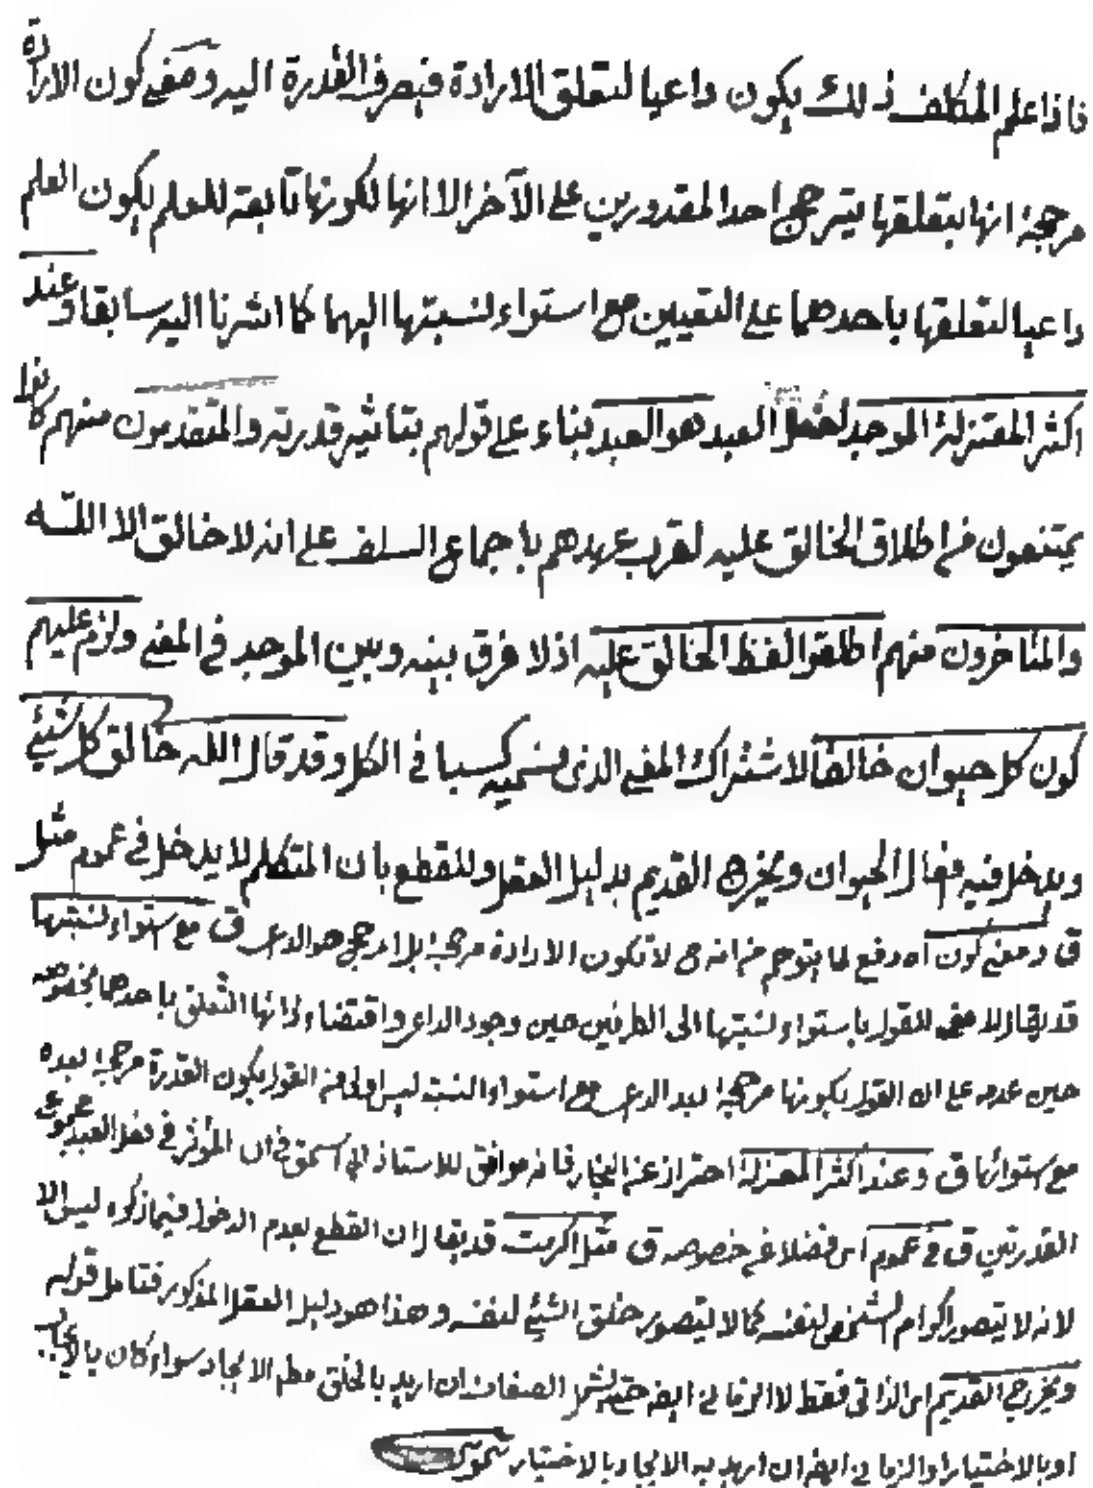 فاذا علم المكلف ذلك يكون داعيا لتعلق الارادة فيصرف القدرة اليه ومعنى كون الارادة
مرجحة انها بتعلقها يترجح احد المقدورين على الآخر الا انها لكونها تابعة للعلم يكون العلم
داعيا لتعلقها باحدهما على التعيين مع استواء نسبتها اليهما كما اشرنا اليه سابقا وعند
اكثر المعتزلة الموجد لفعل العبد هو العبد بناء على قولهم بتأثير قدرته والمتقدمون منهم كانوا
يمتنعون من اطلاق الخالق عليه لقرب عهدهم باجماع السلف على انه لا خالق الا اللّه
والمتأخرون منهم اطلقوا لفظ الخالق عليه اذ لا فرق بينه وبين الموجد في المعنى ولزم عليهم
كون كل حيوان خالقا لاشتراك المعنى الذى نسميه كسبا في الكل وقد قال الله خالق كل شيئ
ويدخل فيه افعال الحيوان ويخرج القديم بدليل العقل وللقطع بان المتكلم لا يدخل في عموم مثل
ق ومعنى كون اه دفع لما يتوهم من انه ح لا تكون الارادة مرجحة بل المرجح هو الداعى ق مع استواء نسبتها
قد يقال لا معنى للقول باستواء نسبتها الى الطرفين حين وجود الداعى واقتضاء ذاتها التعلق باحدهما بخصوصه
حين عدمه على ان القول بكونها مرجحة بعد الداعى مع استواء النسبة ليس اولى من القول بكون القدرة مرجحة بعده
مع استوائها ق وعند اكثر المعتزلة احتراز عن النجار فانه موافق للاستاذ ابي اسحق في ان المؤثر في فعل العبد مجموع
القدرتين ق في عموم اى فضلا عن خصوصه ق مثل اكرمت قد يقال ان القطع بعدم الدخول فيما ذكره ليس الا
لانه لا يتصور اكرام الشخص لنفسه كما لا يتصور خلق الشيئ لنفسه وهذا هو دليل العقل المذكور فتامل قوله
ويخرج القديم اى الذاتى فقط لا الزمانى ايضا حتى يشمل الصفات ان اريد بالخلق مطلق الايجاد سواء كان بالايجاب
او بالاختيار او الزمانى ايضا ان اريد به الايجاد بالاختيار